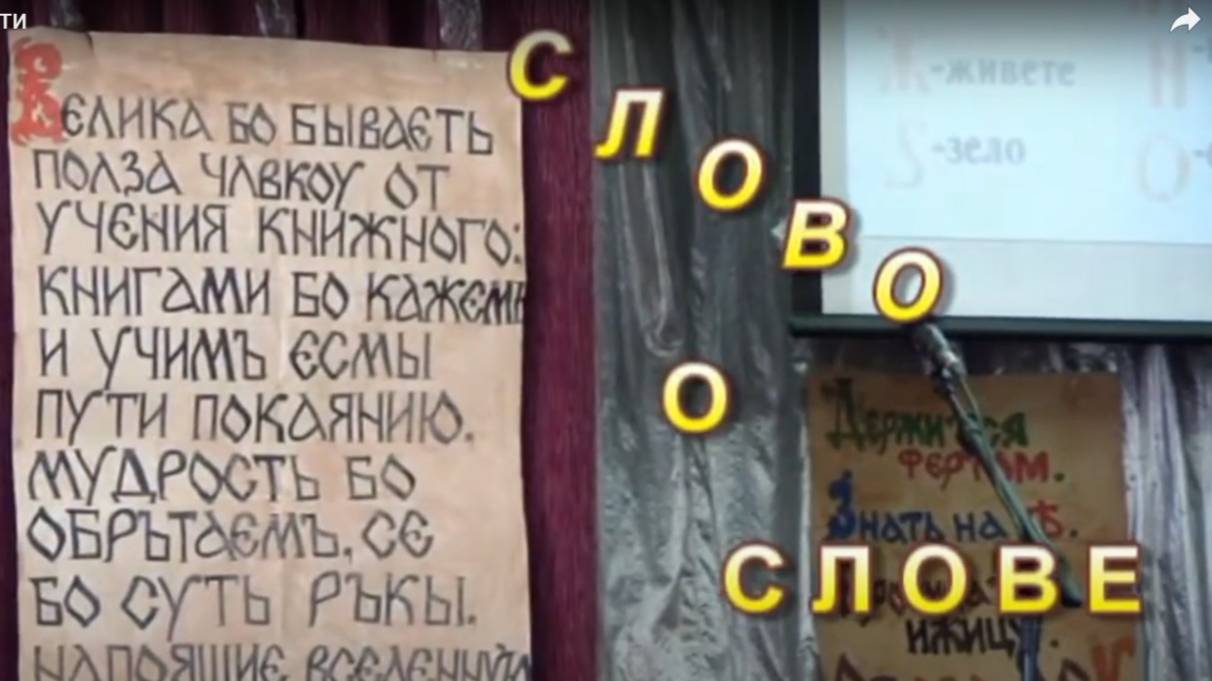 ти
Велика бо бываєть
полза члвкоу от
учения книжного:
книгами бо кажемъ
и учимъ єсмы
пути покаянию.
мудрость бо
обрътаємъ, сє
бо суть ръкы.
напоящиє вселенную
СЛОВО
О
СЛОВЕ
Ж -живете
Ѕ -зело
Держится
фертом.
Знать на ѣ.
ижицу